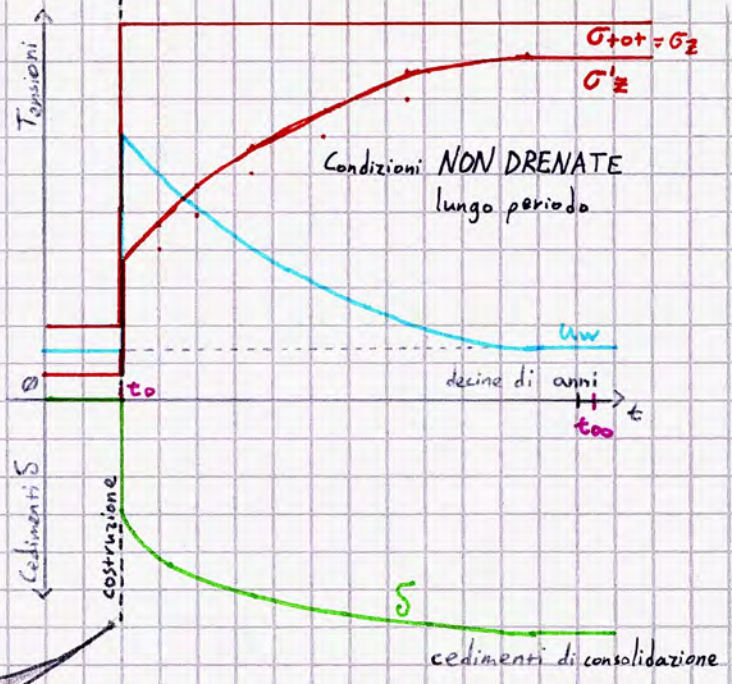 Tensioni
σtot = σz
σ'z
Condizioni NON DRENATE
lungo periodo
uw
0
t0
decine di anni
t
t∞
Cedimenti δ
costruzione
δ
cedimenti di consolidazione